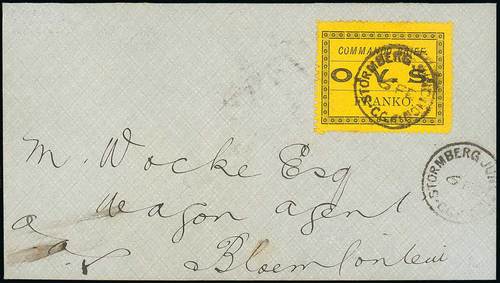 COMMANDO BRIEF
O V S
FRANKO.
STORMBERG JUNCTION
STORMBERG JUN
M. Wocke Esq
Wagon agent
Bloemfontein